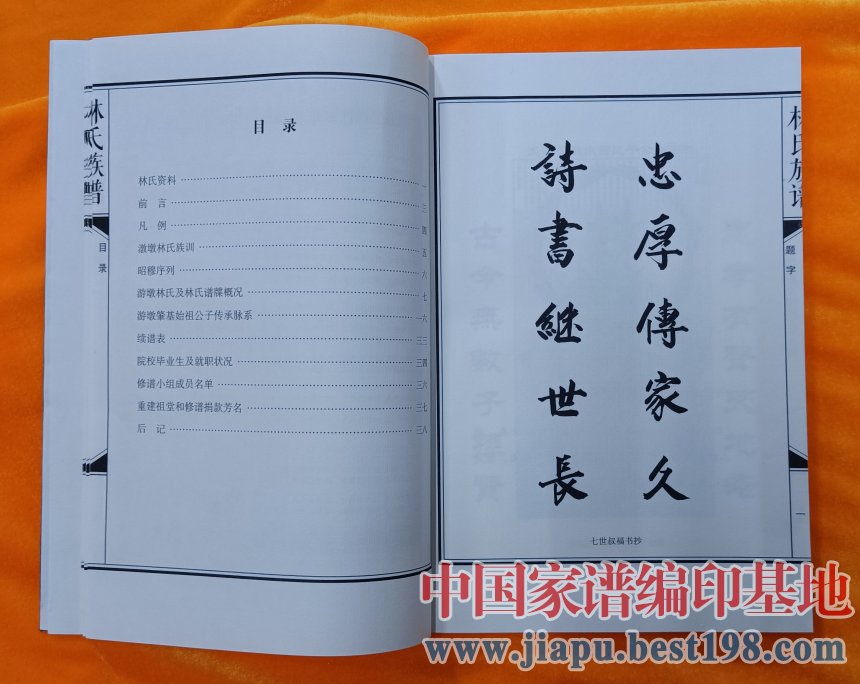 林氏族谱
目录
目 录
林氏资料 一
前 言 三
凡 例 四
激墩林氏族训 五
昭穆序列 六
游墩林氏及林氏谱牒概况 七
游墩肇基始祖公子传承脉系 一六
续谱表 三三
院校毕业生及就职状况 三四
修谱小组成员名单 三六
重建祖堂和修谱捐款芳名 三七
后 记 三八
忠厚傳家久
詩書継世長
七世叔福书抄
林氏族谱
题字
一
中国家谱编印基地
www.jiapu.best198.com